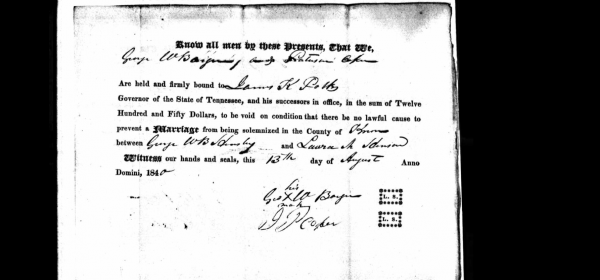 Know all men by these Presents, That We,
George W and
Are held and firmly bound to James K Polk
Governor of the State of Tennessee, and his successors in office, in the sum of Twelve
Hundred and Fifty Dollars, to be void on condition that there be no lawful cause to
prevent a Marriage from being solemnized in the County of
between George W B and Laura
Witness our hands and seals, this 13th day of August Anno
Domini, 1840
his
Geo X W
mark
L. S.
L. S.